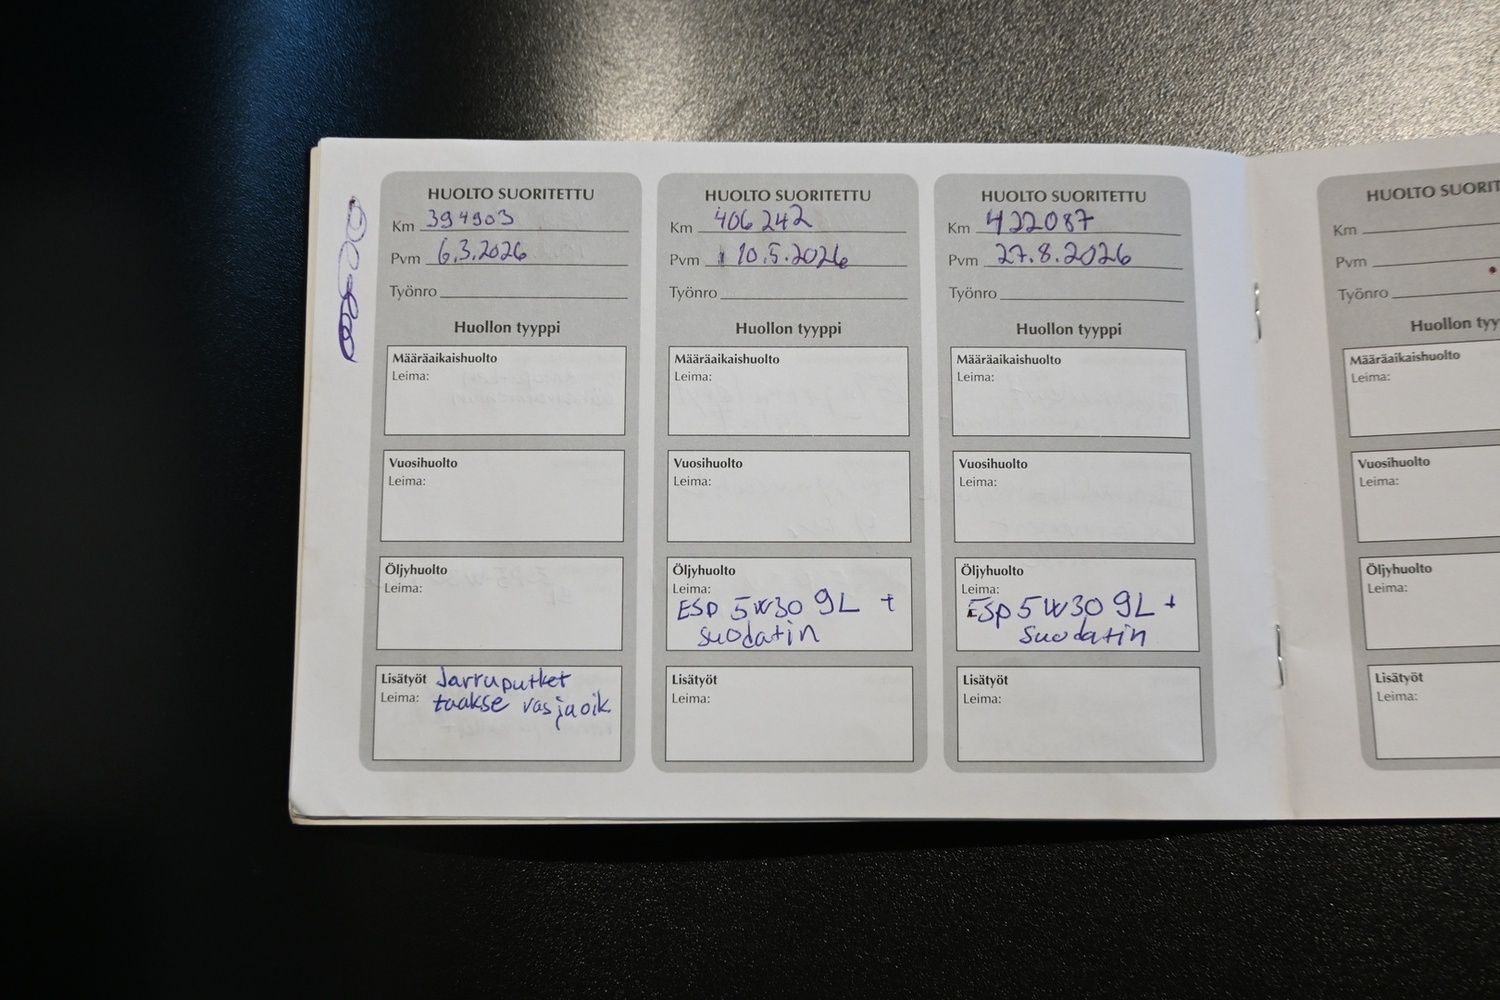 HUOLTO SUORITETTU
Km 394903
Pvm 6.3.2026
Työnro
Huollon tyyppi
Määräaikaishuolto
Leima:
Vuosihuolto
Leima:
Öljyhuolto
Leima:
Lisätyöt Jarruputket
Leima: taakse vas ja oik.
HUOLTO SUORITETTU
Km 406242
Pvm 10.5.2026
Työnro
Huollon tyyppi
Määräaikaishuolto
Leima:
Vuosihuolto
Leima:
Öljyhuolto
Leima:
ESP 5W30 9L +
suodatin
Lisätyöt
Leima:
HUOLTO SUORITETTU
Km 422087
Pvm 27.8.2026
Työnro
Huollon tyyppi
Määräaikaishuolto
Leima:
Vuosihuolto
Leima:
Öljyhuolto
Leima:
ESP 5W30 9L +
Suodatin
Lisätyöt
Leima:
HUOLTO SUORIT
Km
Pvm
Työnro
Huollon tyy
Määräaikaishuolto
Leima:
Vuosihuolto
Leima:
Öljyhuolto
Leima:
Lisätyöt
Leima: